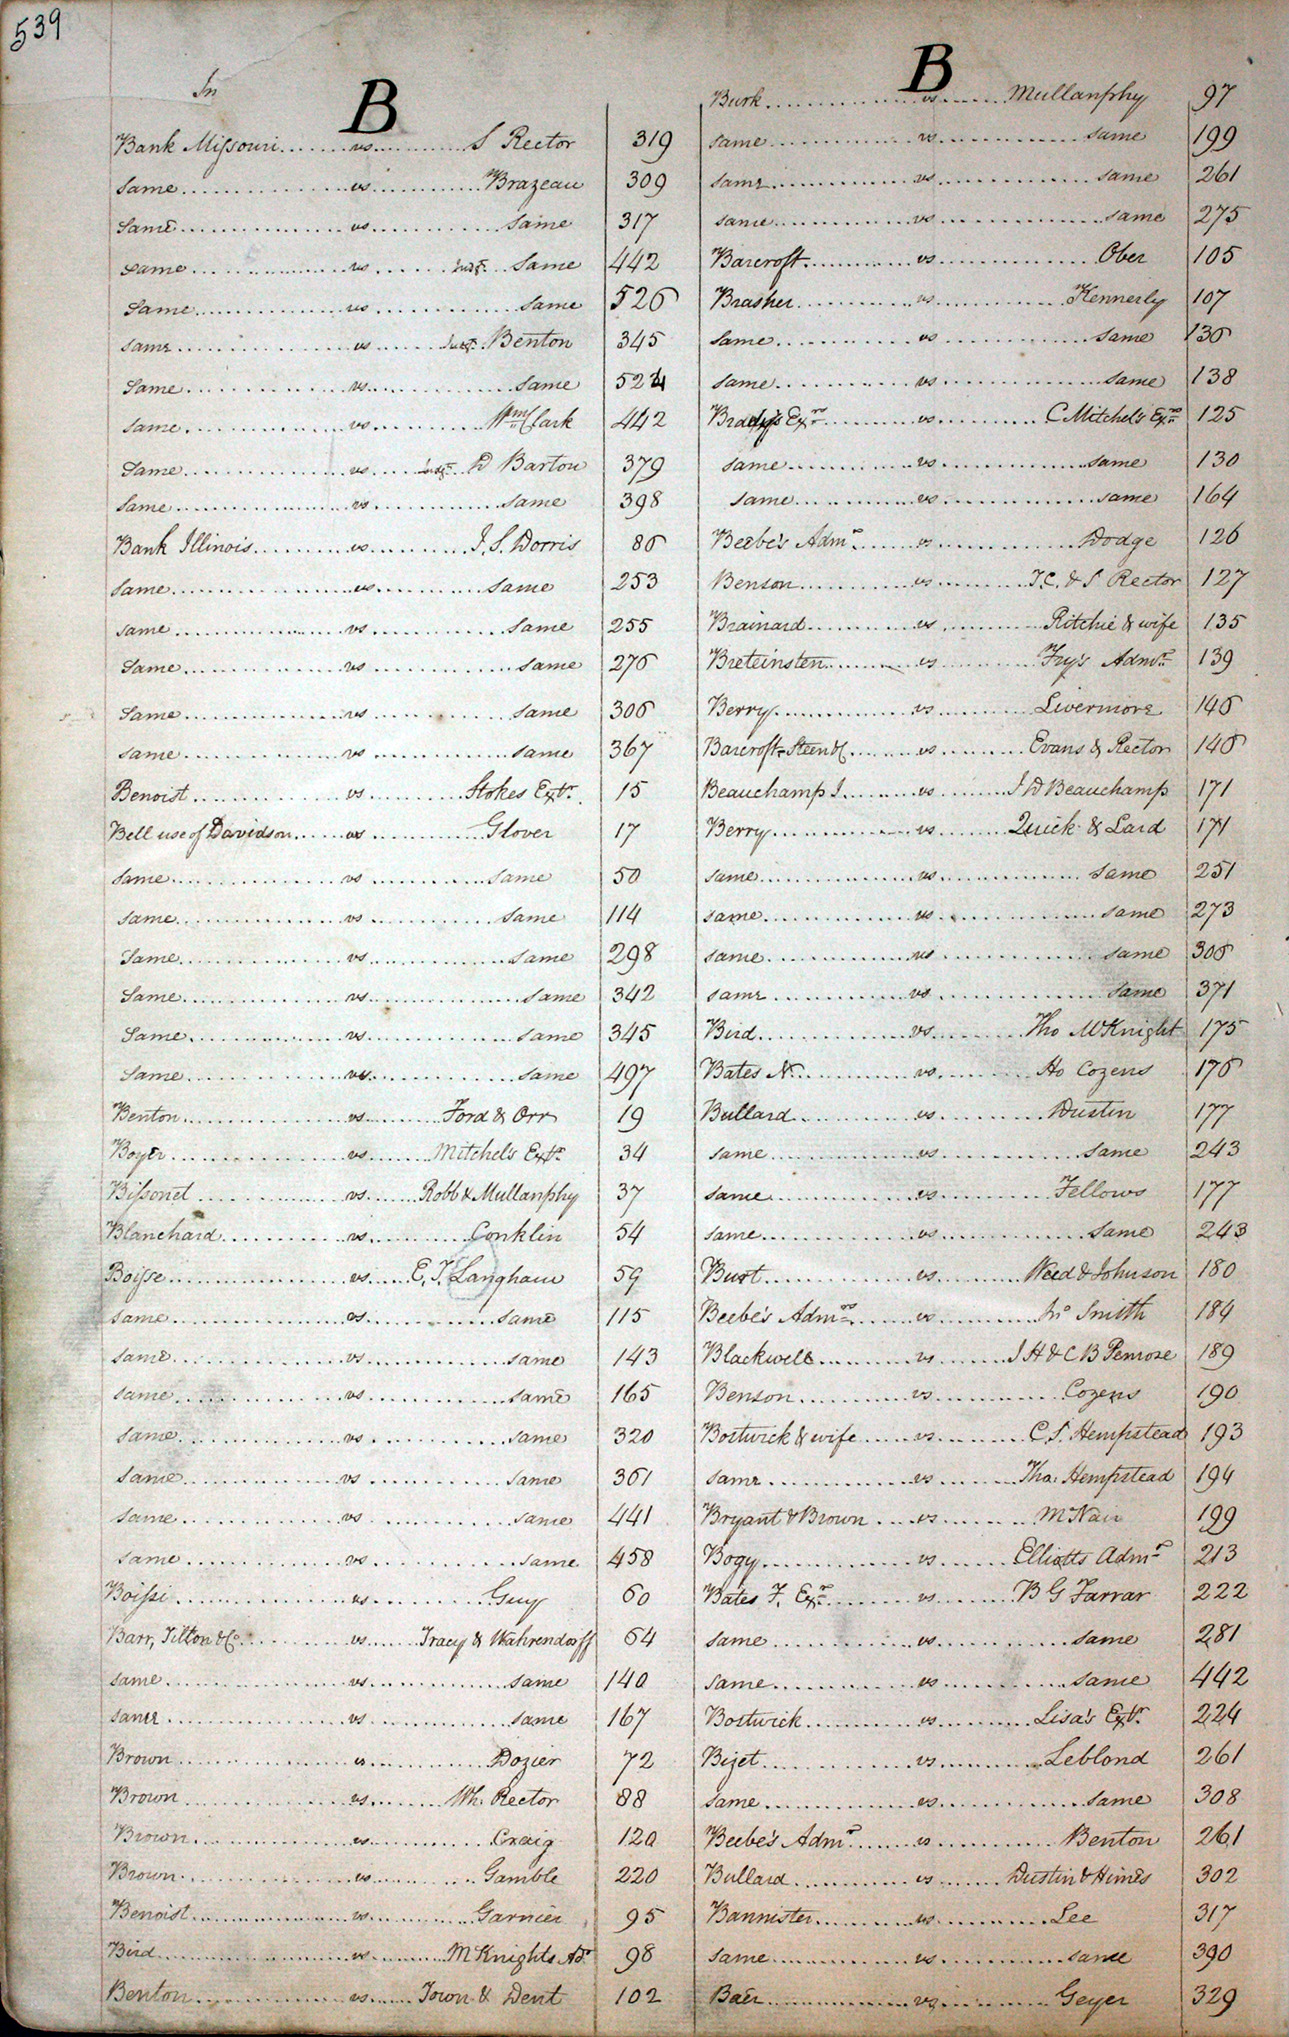 539
In B
Bank Missouri vs S Rector 319
same vs Brazeau 309
Same vs Same 317
same vs Judgt. Same 442
Same vs Same 526
same vs Judgt. Benton 345
Same vs Same 524
same vs Wm Clark 442
Same vs Judgt. D Barton 379
Same vs Same 398
Bank Illinois vs J. S. Dorris 86
same vs Same 253
same vs Same 255
Same vs same 276
Same vs same 306
same vs same 367
Benoist vs Stokes Extr. 15
Bell use of Davidson vs Glover 17
same vs same 50
same vs same 114
Same vs same 298
Same vs same 342
Same vs same 345
Same vs same 497
Benton vs Ford & Orr 19
Boyer vs Mitchels Extr 34
Bissonet vs Robb & Mullanphy 37
Blanchard vs Conklin 54
Boisse vs E. T. Langham 59
same vs same 115
same vs same 143
same vs same 165
same vs same 320
same vs same 361
same vs same 441
same vs same 458
Boissi vs Guy 60
Barr, Tilton & Co. vs Tracy & Wahrendorff 64
same vs same 140
same vs same 167
Brown vs Dozier 72
Brown vs Wh. Rector 88
Brown vs Craig 120
Brown vs Gamble 220
Benoist vs Garnier 95
Bird vs McKnights Adr 98
Benton vs Town & Dent 102
B
Burk vs Mullanphy 97
same vs same 199
same vs same 261
same vs same 275
Barcroft vs Ober 105
Brasher vs Kennerly 107
same vs same 136
same vs same 138
Bradys Exrs vs C Mitchel's Exrs 125
same vs same 130
same vs same 164
Beebe's Admr. vs Dodge 126
Benson vs T. C. & S Rector 127
Brainard vs Ritchie & wife 135
Breteinsten vs Fry's Admr 139
Berry vs Livermore 146
Barcroft Steen & C vs Evans & Rector 146
Beauchamp J vs J D Beauchamp 171
Berry vs Quick & Lard 171
same vs same 251
same vs same 273
same vs same 306
same vs same 371
Bird vs Tho McKnight 175
Bates N. vs Ho Cozens 176
Bullard vs Dustin 177
same vs same 243
same vs Fellows 177
same vs same 243
Burt vs Weed & Johnson 180
Beebe's Admrs vs Jno Smith 184
Blackwell vs J H & C B Penrose 189
Benson vs Cozens 190
Bostwick & wife vs C. S. Hempstead 193
same vs Tho. Hempstead 194
Bryant & Brown vs McNair 199
Bogy vs Elliotts Admr 213
Bates F. Exr. vs B G Farrar 222
same vs same 281
same vs same 442
Bostwick vs Lisa's Extr. 224
Bizet vs Leblond 261
same vs same 308
Beebe's Admr. vs Benton 261
Bullard vs Dustin & Himes 302
Bannister vs Lee 317
same vs same 390
Baer vs Geyer 329